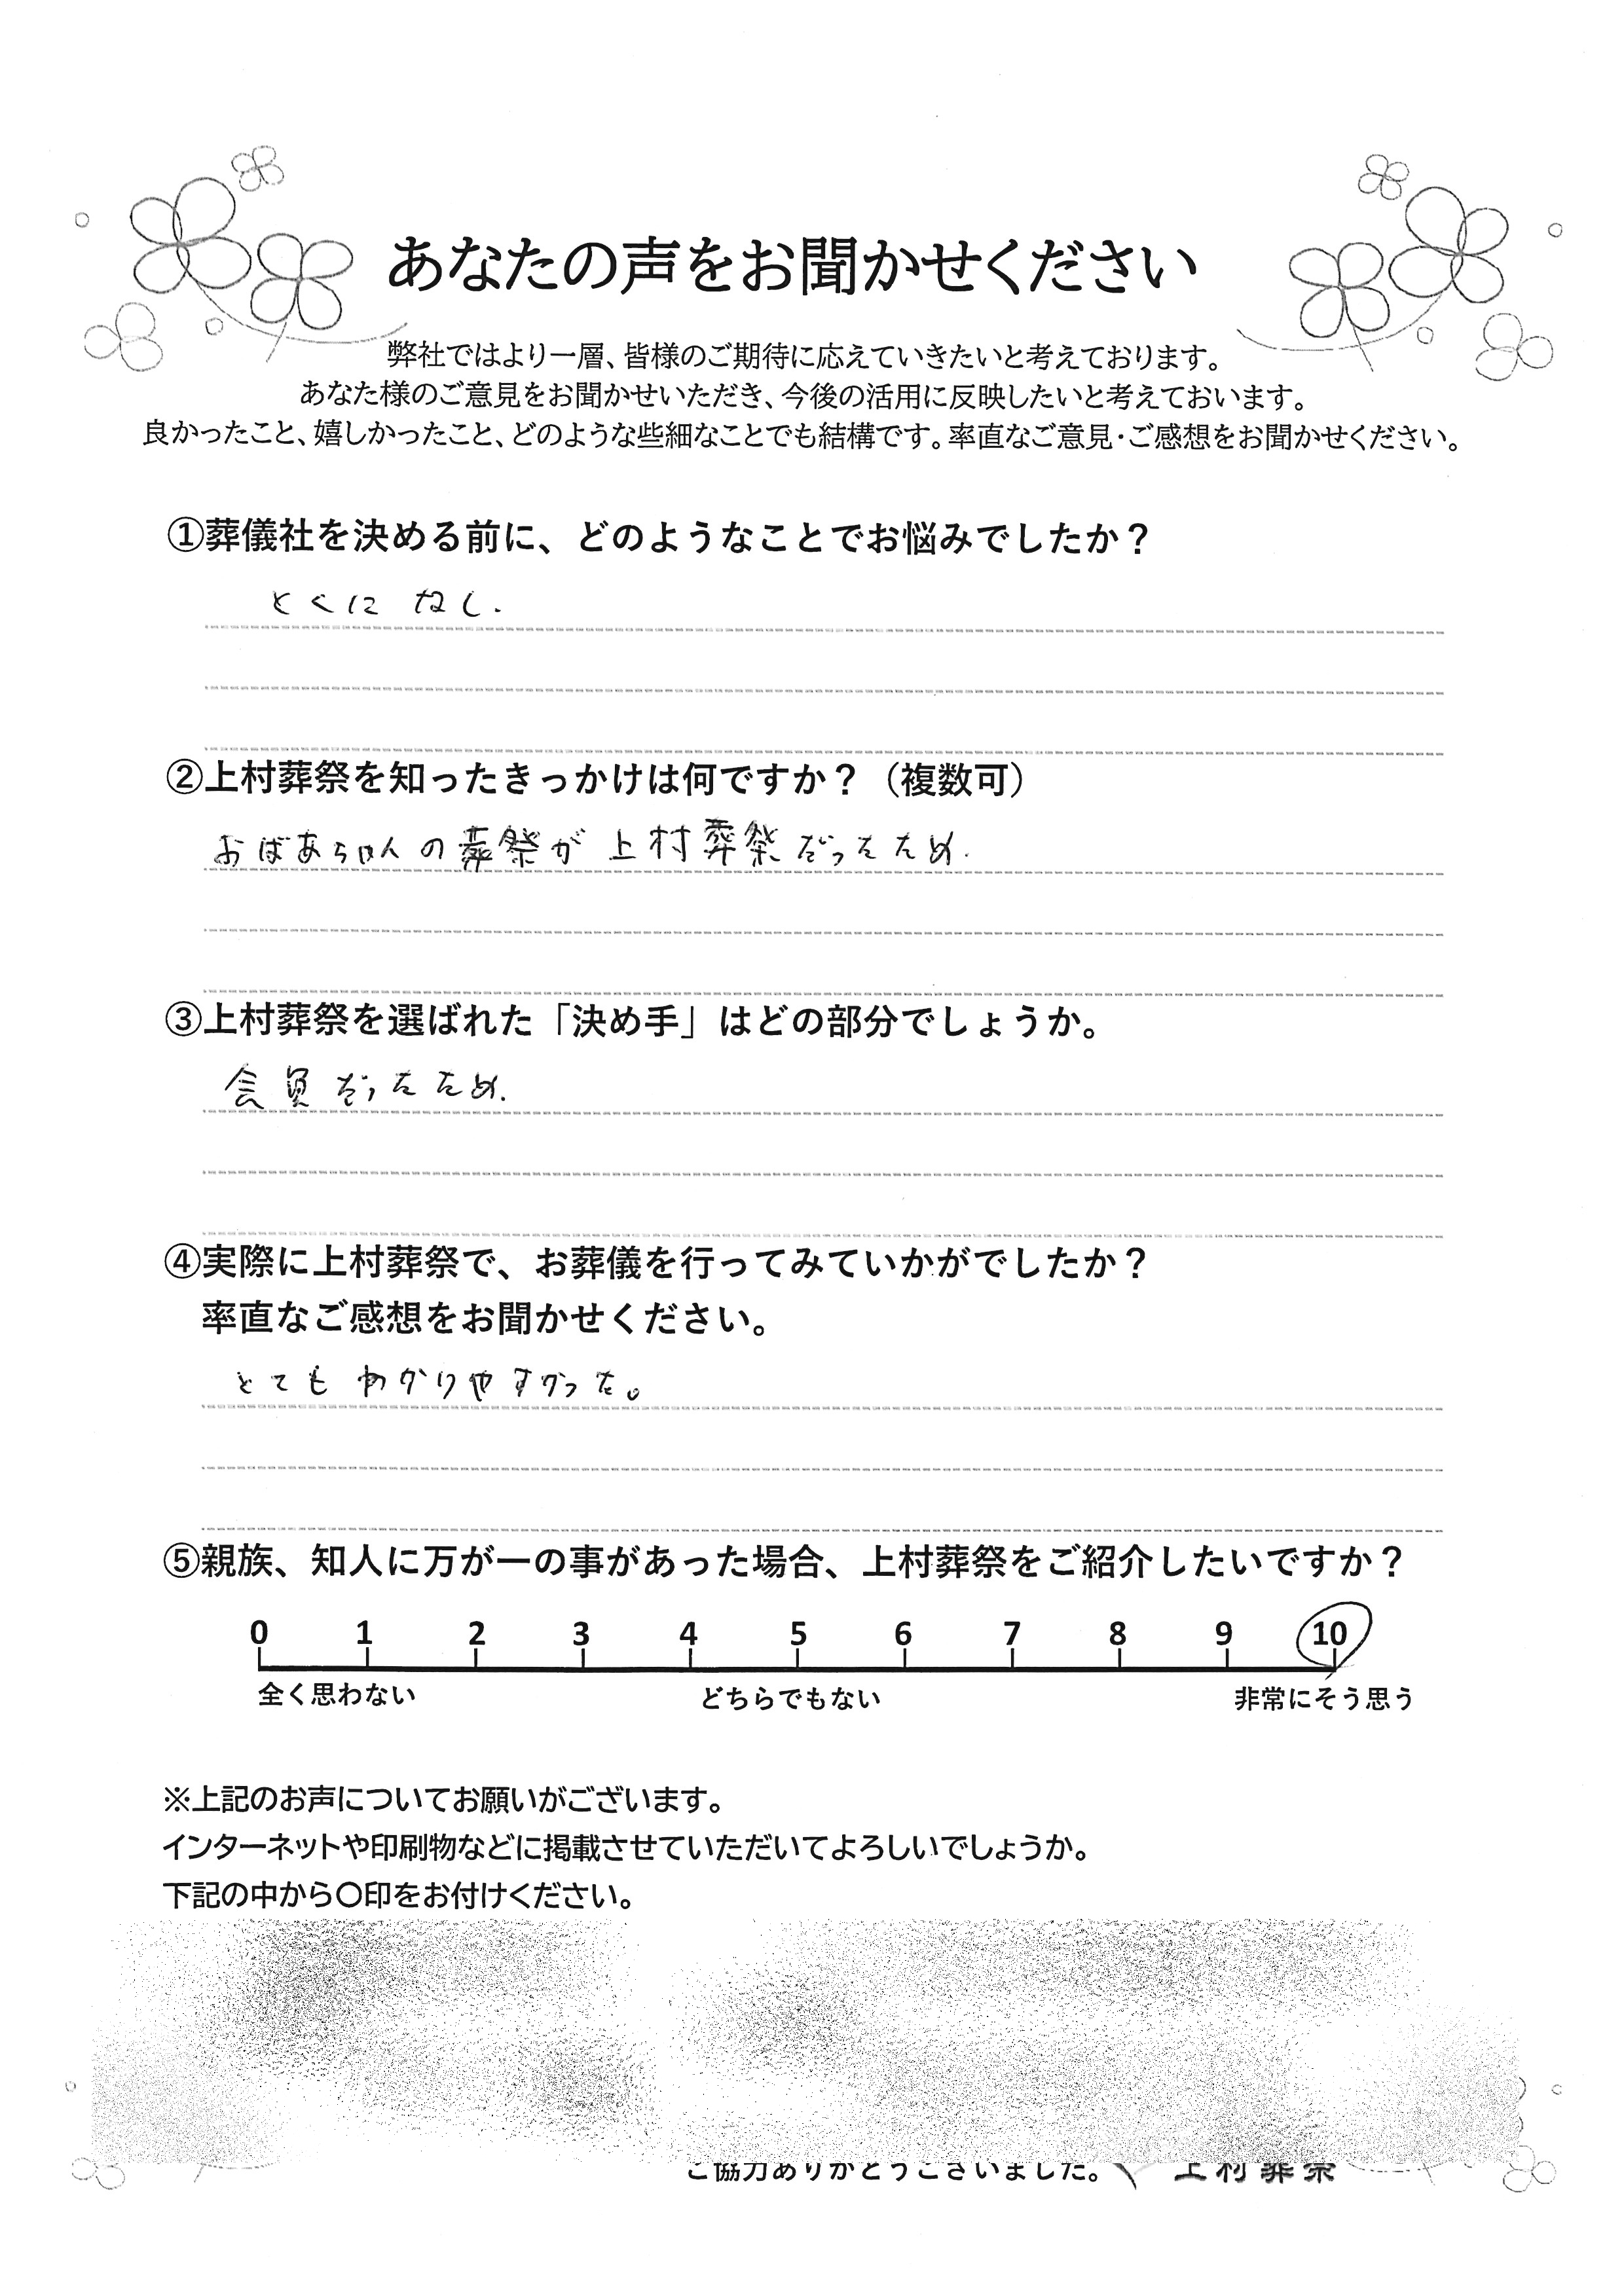 あなたの声をお聞かせください
弊社ではより一層、皆様のご期待に応えていきたいと考えております。
あなた様のご意見をお聞かせいただき、今後の活用に反映したいと考えておいます。
良かったこと、嬉しかったこと、どのような些細なことでも結構です。率直なご意見・ご感想をお聞かせください。
①葬儀社を決める前に、どのようなことでお悩みでしたか？
とくに なし.
②上村葬祭を知ったきっかけは何ですか？（複数可）
おばあちゃんの葬祭が上村葬祭だったため.
③上村葬祭を選ばれた「決め手」はどの部分でしょうか。
会員だったため.
④実際に上村葬祭で、お葬儀を行ってみていかがでしたか？
率直なご感想をお聞かせください。
とてもわかりやすかった。
⑤親族、知人に万が一の事があった場合、上村葬祭をご紹介したいですか？
0 1 2 3 4 5 6 7 8 9 10
全く思わない どちらでもない 非常にそう思う
※上記のお声についてお願いがございます。
インターネットや印刷物などに掲載させていただいてよろしいでしょうか。
下記の中から〇印をお付けください。
ご協力ありがとうございました。 上村葬祭